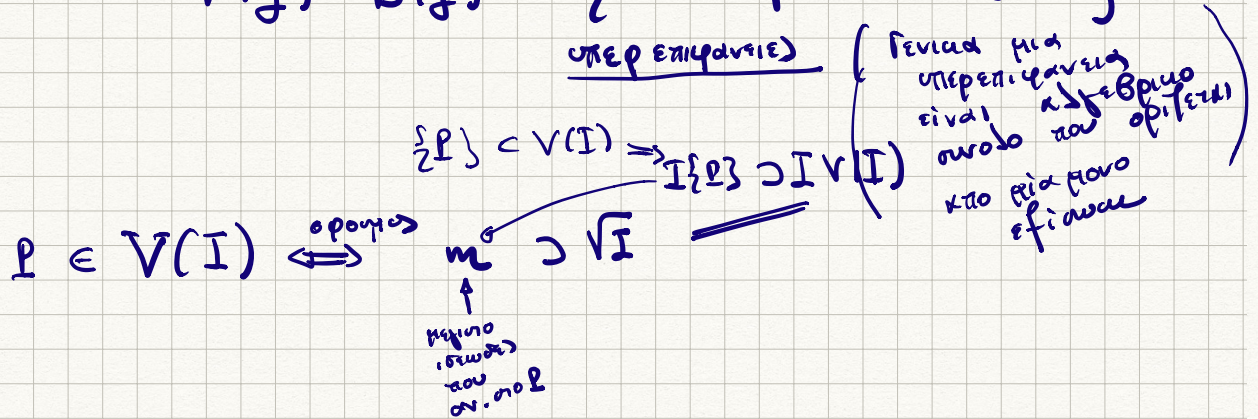 υπερεπιφανειες
( Γενικα μια
υπερεπιφανεια
ειναι αλγεβρικο
συνολο που οριζεται
απο μια μονο
εξισωση )
{P} ⊂ V(I) ⇒ I{P} ⊃ I V(I)
P ∈ V(I) ⇔ m ⊃ √I
ορισμος
μεγιστο
ιδεωδες
που
αν. στο P